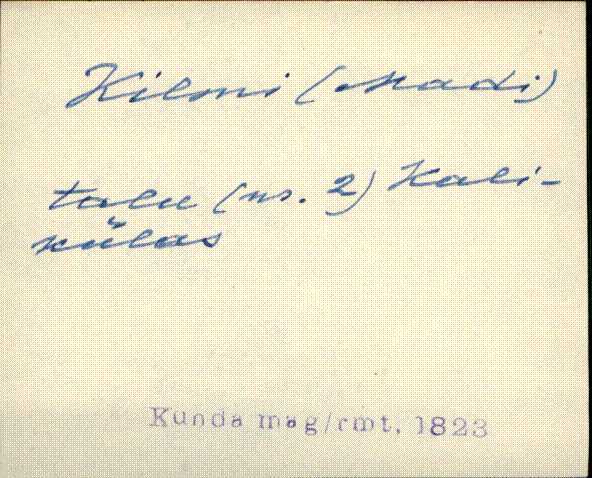 Kilmi (Madi)
talu (nr. 2) Kali-
külas
Kunda mag/rmt, 1823